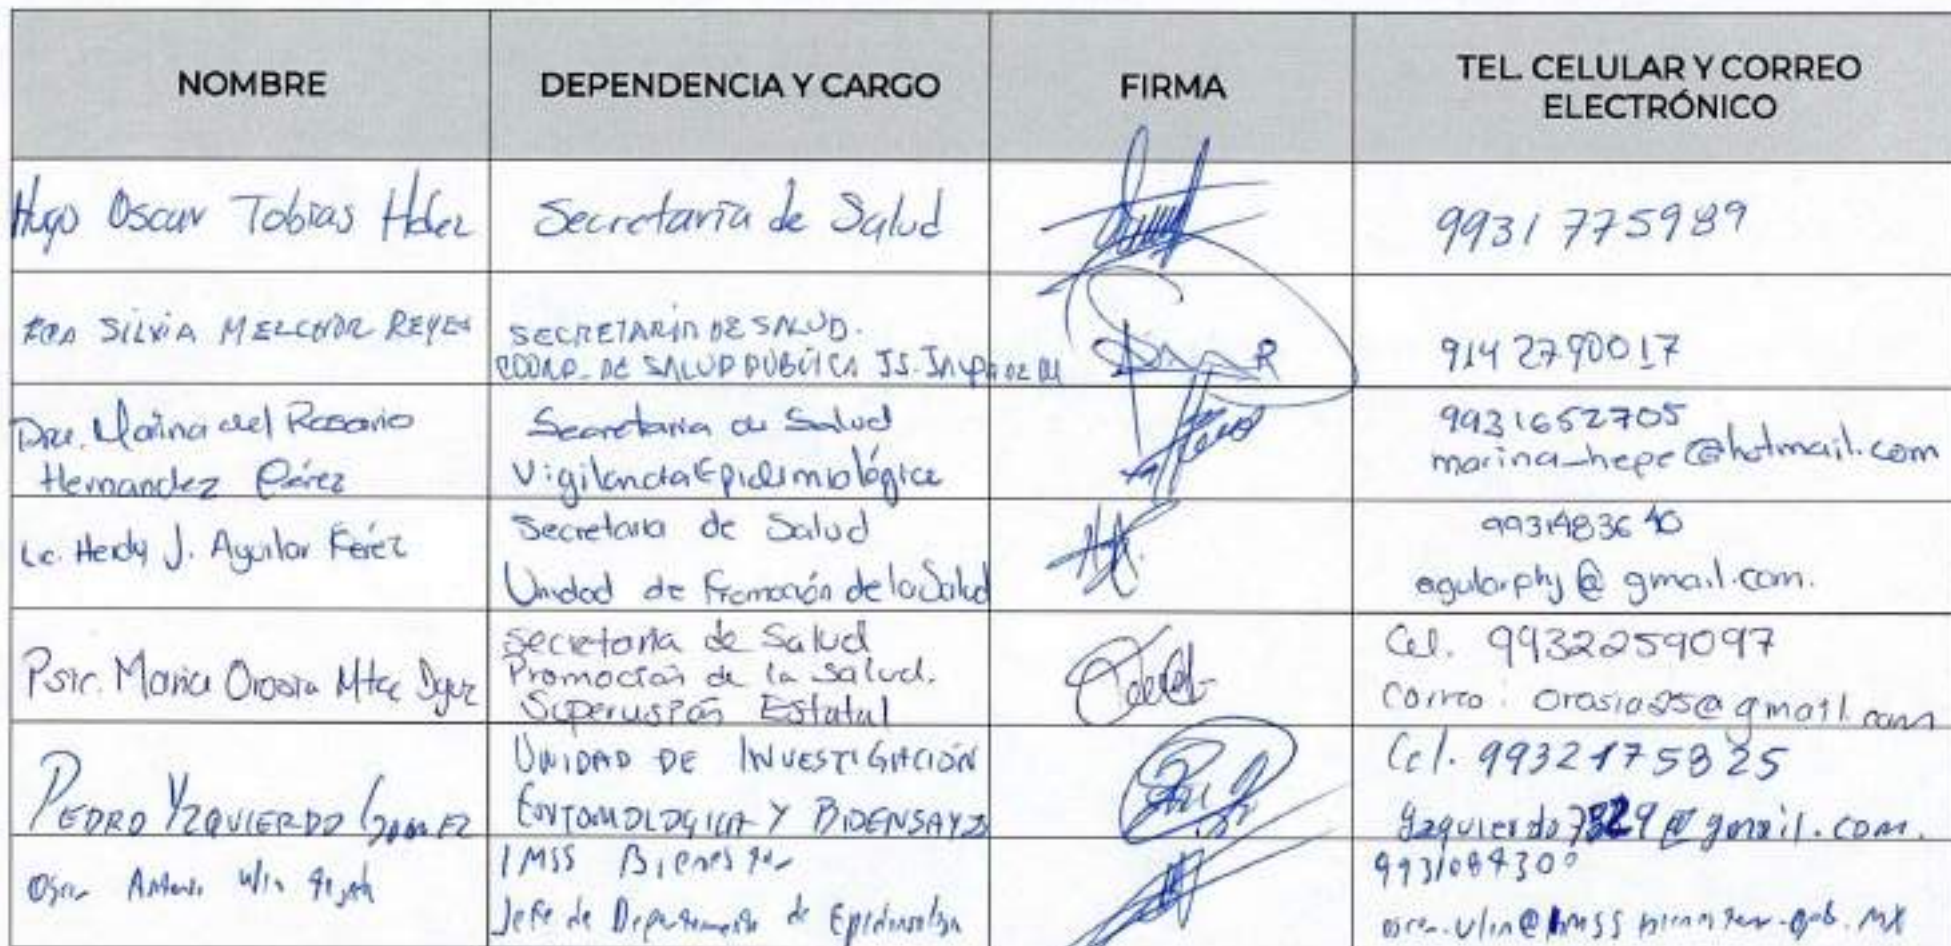 NOMBRE
DEPENDENCIA Y CARGO
FIRMA
TEL. CELULAR Y CORREO
ELECTRÓNICO
Hugo Oscar Tobias
Secretaría de Salud
9931 775989
SILVIA MELCHOR REYES
SECRETARÍA DE SALUD.
COORD. DE SALUD PÚBLICA JS.
914 2790017
Dra. Marina del Rosario
Hernandez Pérez
Secretaria de Salud
Vigilancia Epidemiológica
9931652705
marina_hepe@hotmail.com
Lic. Heidy J. Aguilar Pérez
Secretaria de Salud
Unidad de Promoción de la Salud
9931483640
aguilarphj@gmail.com.
Psic. Maria Orosia Mtez Dguez
Secretaria de Salud
Promoción de la Salud.
Supervisión Estatal
Cel. 99322259097
Correo: orosia25@gmail.com
PEDRO YZQUIERDO GOMEZ
UNIDAD DE INVESTIGACIÓN
ENTOMOLOGICA Y BIOENSAYOS
Cel. 9932175825
@gmail.com.
Antonio Ulin
IMSS Bienestar
Jefe de Departamento de Epidemiologia